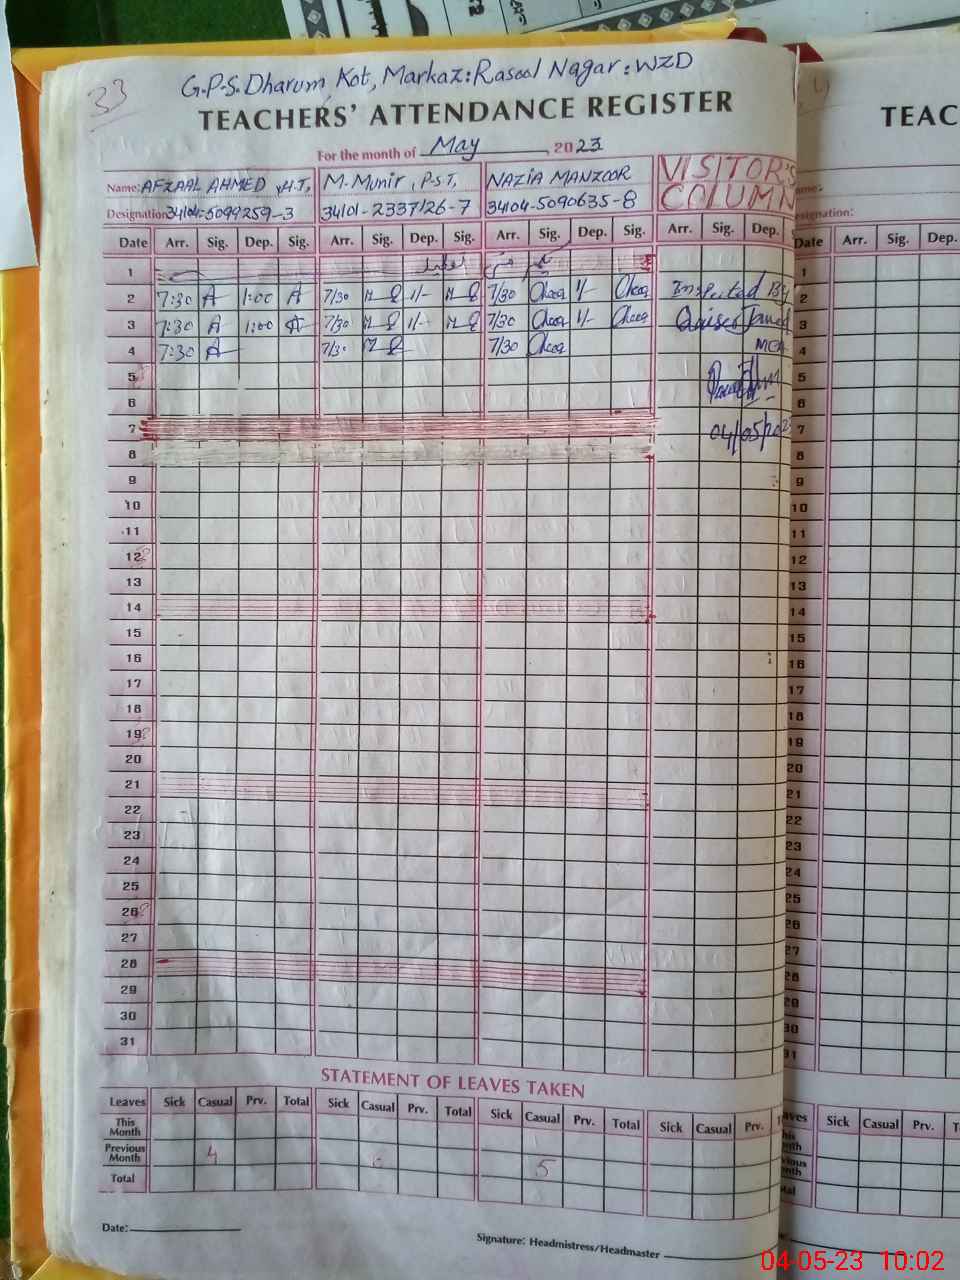 33
G.P.S. Dharum Kot, Markaz: Rasool Nagar: WZD
TEACHERS' ATTENDANCE REGISTER
For the month of May, 2023
Name: AFZAAL AHMED, H.T, M. Munir, P.S.T, NAZIA MANZOOR VISITOR'S COLUMN
Designation: 34104-5099259-3 34101-2337126-7 34104-5090635-8
Date Arr. Sig. Dep. Sig. Arr. Sig. Dep. Sig. Arr. Sig. Dep. Sig. Arr. Sig. Dep.
1
2 7:30 A 1:00 A 7/30 1/- 7/30 1/- Inspected By
3 7:30 A 1:00 A 7/30 1/- 7/30 1/-
4 7:30 A 7/30 7/30
5
6
7 04/05/202
8
9
10
11
12
13
14
15
16
17
18
19
20
21
22
23
24
25
26
27
28
29
30
31
STATEMENT OF LEAVES TAKEN
Leaves Sick Casual Prv. Total Sick Casual Prv. Total Sick Casual Prv. Total Sick Casual Prv.
This Month
Previous Month 4 5
Total
Date:
Signature: Headmistress/Headmaster
TEAC
Date Arr. Sig. Dep.
1
2
3
4
5
6
7
8
9
10
11
12
13
14
15
16
17
18
19
20
21
22
23
24
25
26
27
28
29
30
31
Sick Casual Prv.
04-05-23 10:02